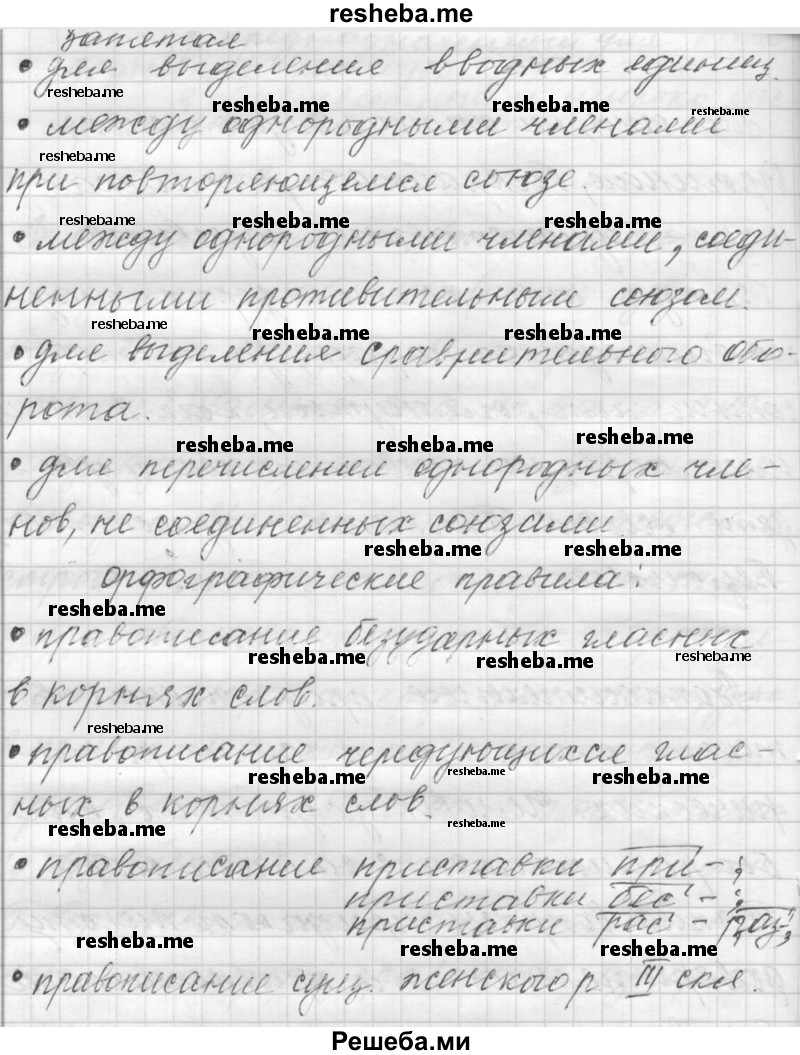 resheba.me
запятая
• для выделения вводных единиц.
resheba.me resheba.me resheba.me resheba.me
• между однородными членами
resheba.me
при повторяющемся союзе.
resheba.me resheba.me resheba.me
• между однородными членами, соеди-
ненными противительным союзом.
resheba.me resheba.me resheba.me
• для выделения сравнительного обо-
рота.
resheba.me resheba.me resheba.me
• для перечисления однородных чле-
нов, не соединенных союзами
resheba.me resheba.me
орфографические правила:
resheba.me
• правописание безударных гласных
resheba.me resheba.me resheba.me
в корнях слов.
resheba.me
• правописание чередующихся глас-
resheba.me resheba.me resheba.me
ных в корнях слов.
resheba.me resheba.me
• правописание приставки при-;
приставки бес-;
приставки рас- - раз-;
resheba.me resheba.me resheba.me
• правописание сущ. женского р III скл.
Решеба.ми